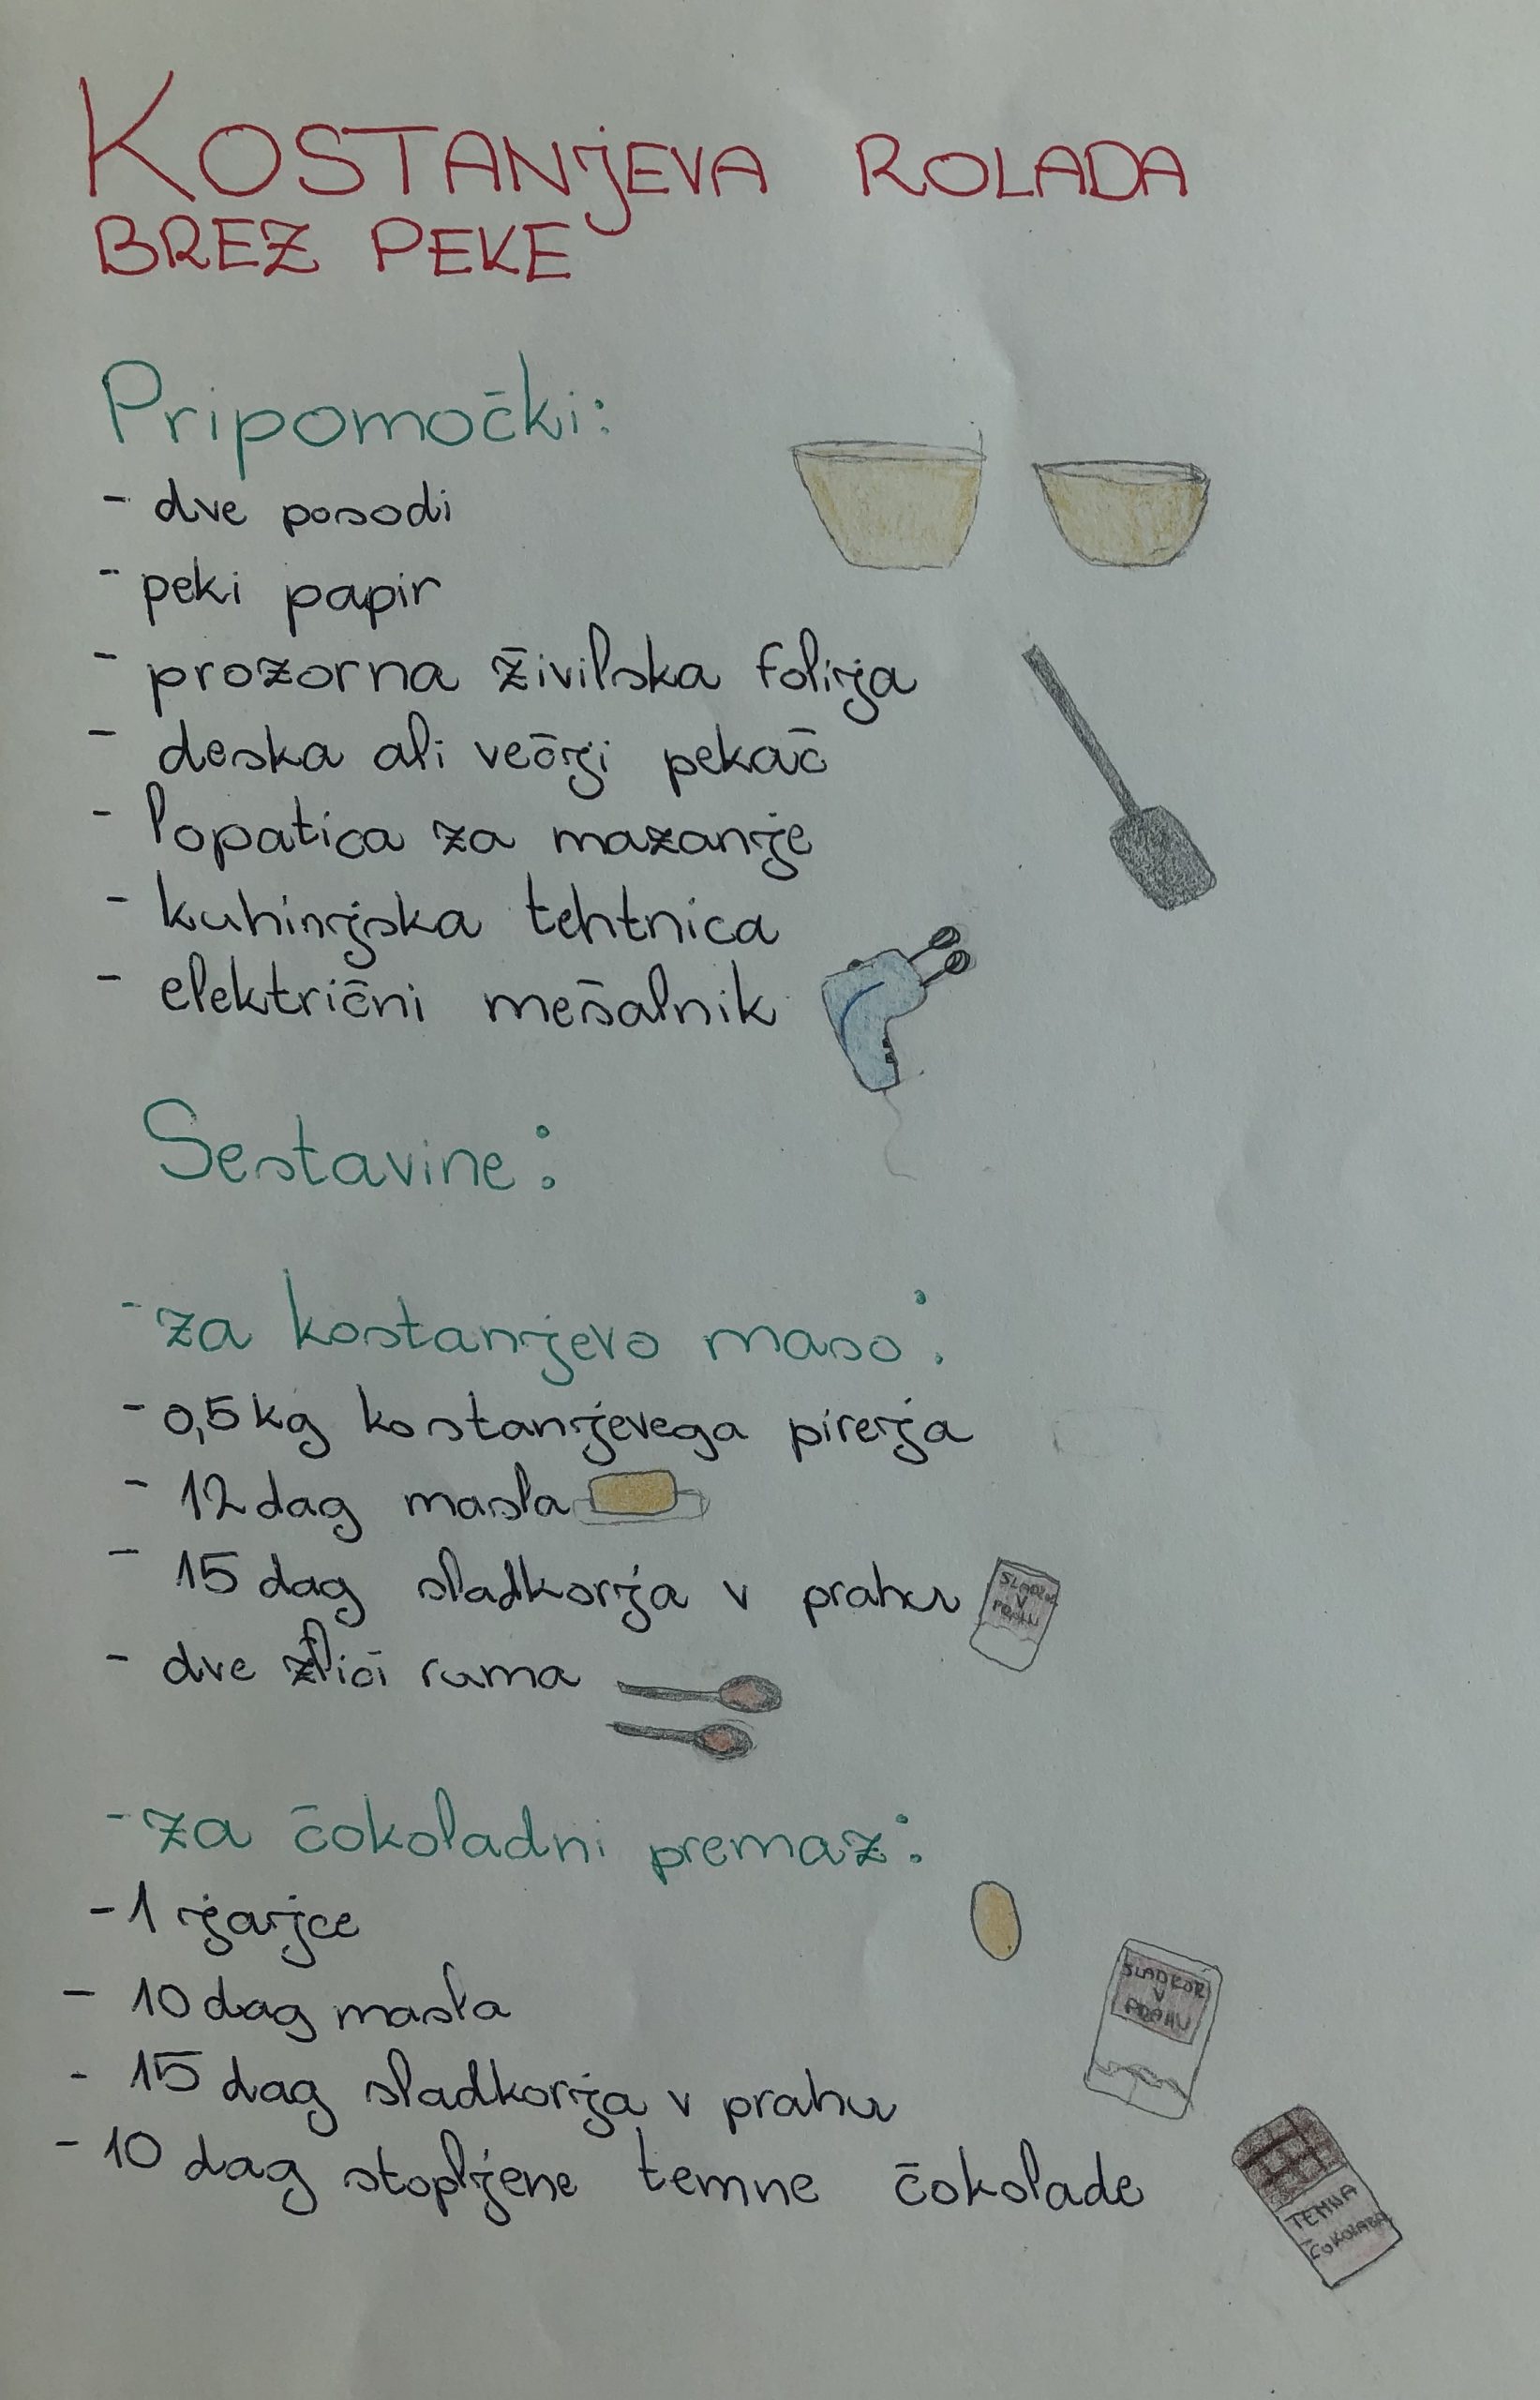 KOSTANJEVA ROLADA
BREZ PEKE
Pripomočki:
- dve posodi
- peki papir
- prozorna živilska folija
- deska ali večji pekač
- lopatica za mazanje
- kuhinjska tehtnica
- električni mešalnik
Sestavine:
- za kostanjevo maso:
- 0,5 kg kostanjevega pireja
- 12 dag masla
- 15 dag sladkorja v prahu
SLADKOR
V
PRAHU
- dve žlici ruma
- za čokoladni premaz:
- 1 jajce
- 10 dag masla
SLADKOR
V
PRAHU
- 15 dag sladkorja v prahu
- 10 dag stopljene temne čokolade
TEMNA
ČOKOLADA